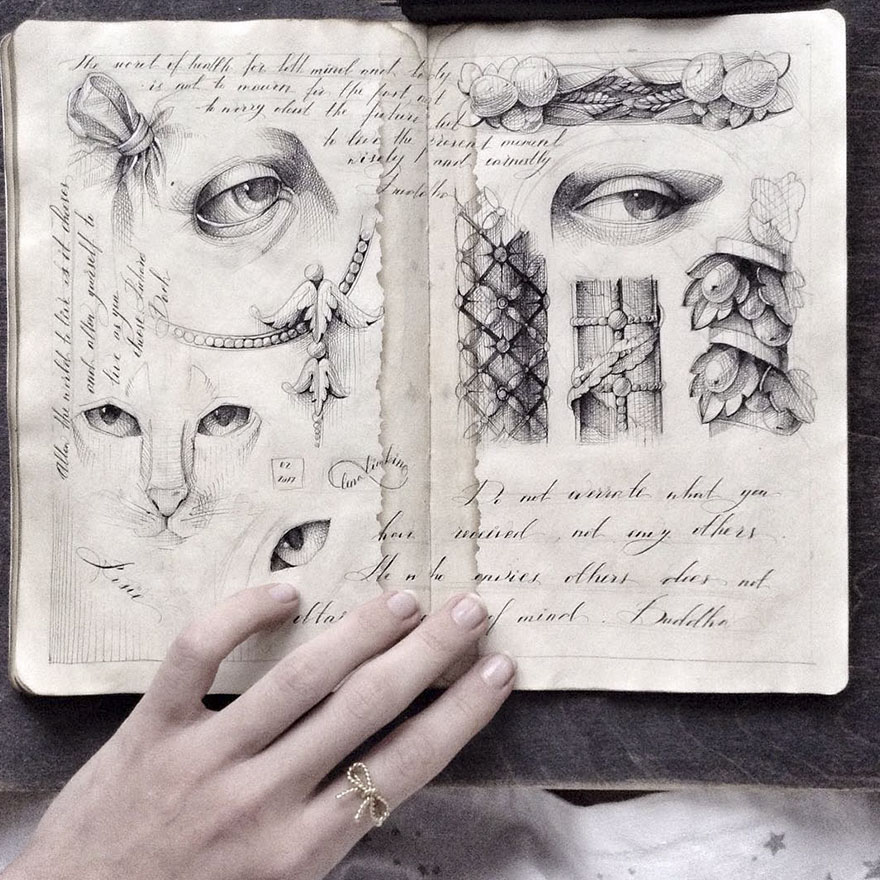 The secret of health for both mind and body
is not to mourn for the past, not
to worry about the future, but
to live the present moment
wisely and earnestly
Buddha
Allow the world to live as it chooses
and allow yourself to
live as you
02
2017
Do not overrate what you
have received, not envy others.
He who envies others does not
of mind. Buddha